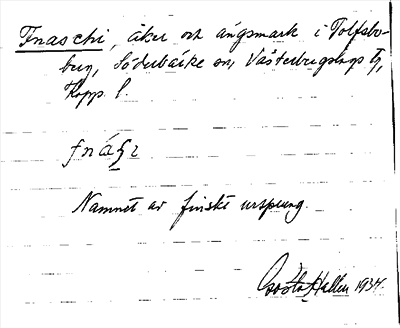 Fnaschi, åker och ängsmark i Tolfsbo-
berg, Söderbärke sn, Västerbergslags tg,
Kopp. l.
fnáʃi
Namnet av finskt ursprung.
Gösta Hallén 1934.